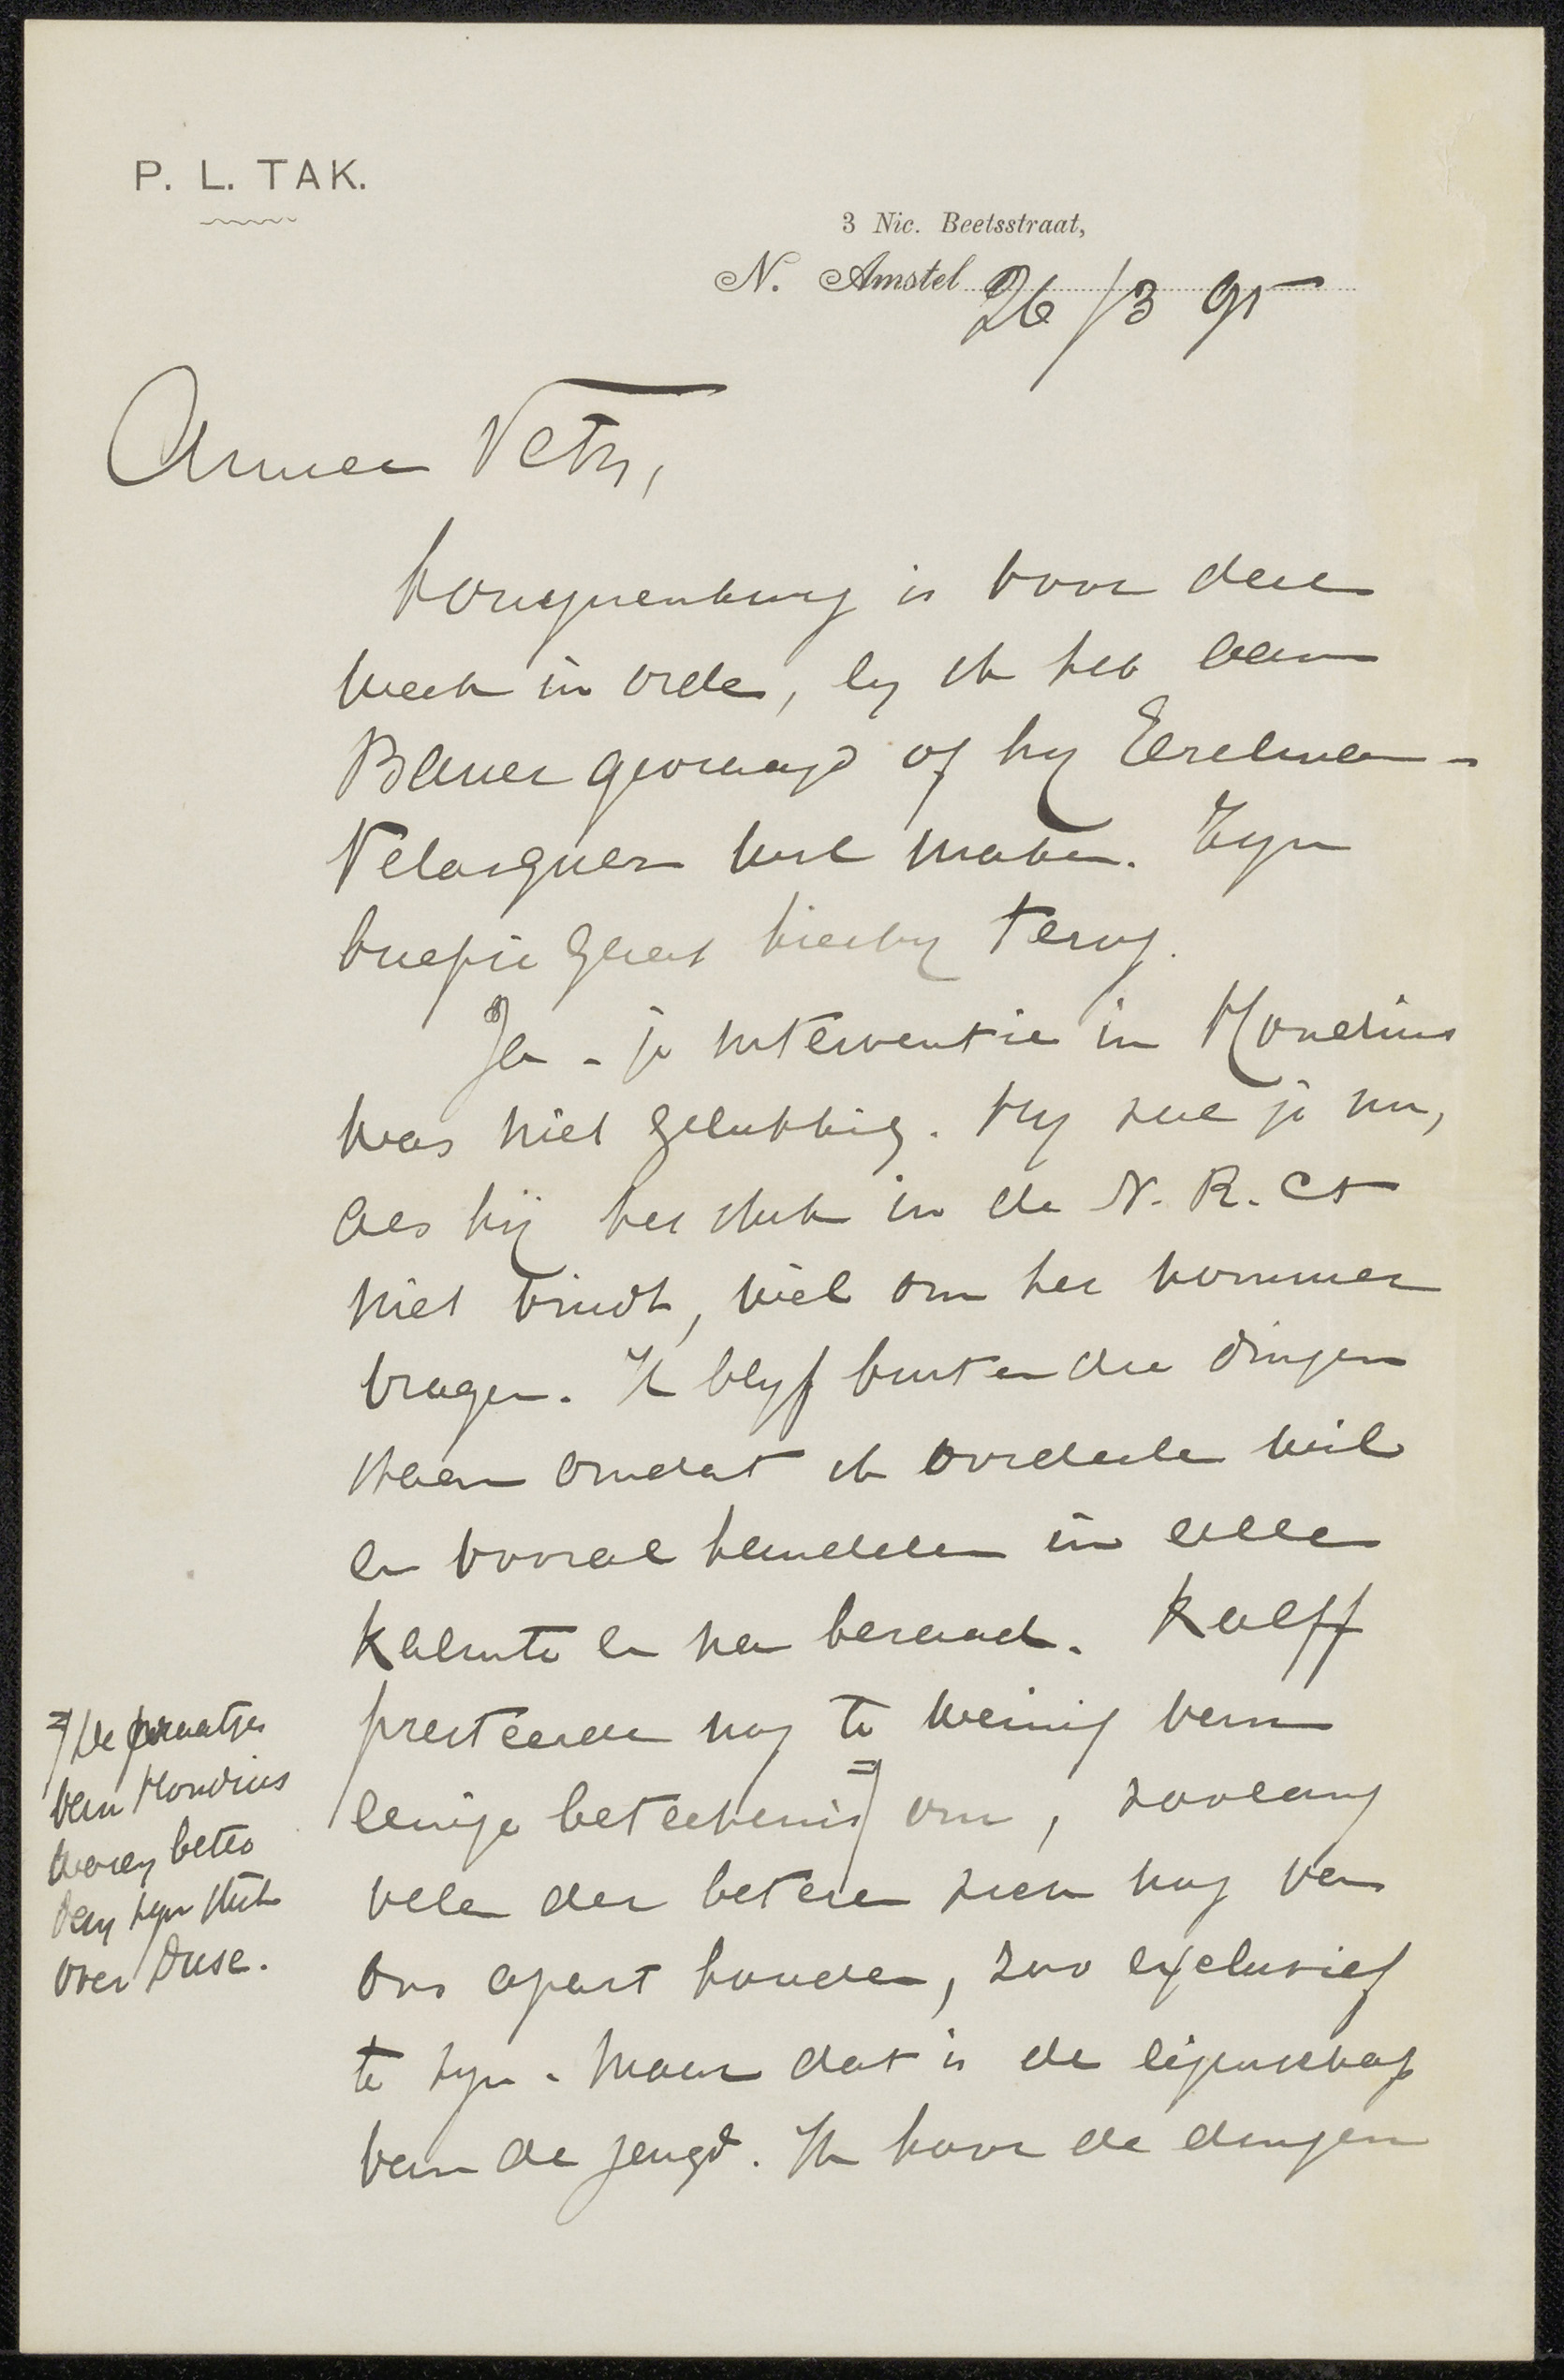 P. L. TAK.
3 Nic. Beetsstraat,
N. Amstel 26/3 95
Amice Veth,
is voor deze
week in orde, en ik heb aan
Bauer gevraagd of hij Eerelman-
Velasquez wil maken. Zijn
briefje gaat hierbij terug.
Ja - je interventie in Hondius
was niet gelukkig. Hij zal je nu,
als hij het stuk in de N. R. Ct
niet vindt, wel om het nommer
vragen. Ik blijf buiten die dingen
staan omdat ik oordeelen wil
en vooral handelen in alle
kalmte en na beraad. Kalff
presteerde nog te weinig van
eenige beteekenis om, zoolang
vele der betere zich nog van
ons apart houden, zoo exclusief
te zijn. Maar dat is de eigenschap
van de jeugd. Ik hoor de dingen
De praatjes
van Hondius
waren beter
dan zijn stuk
over Duse.